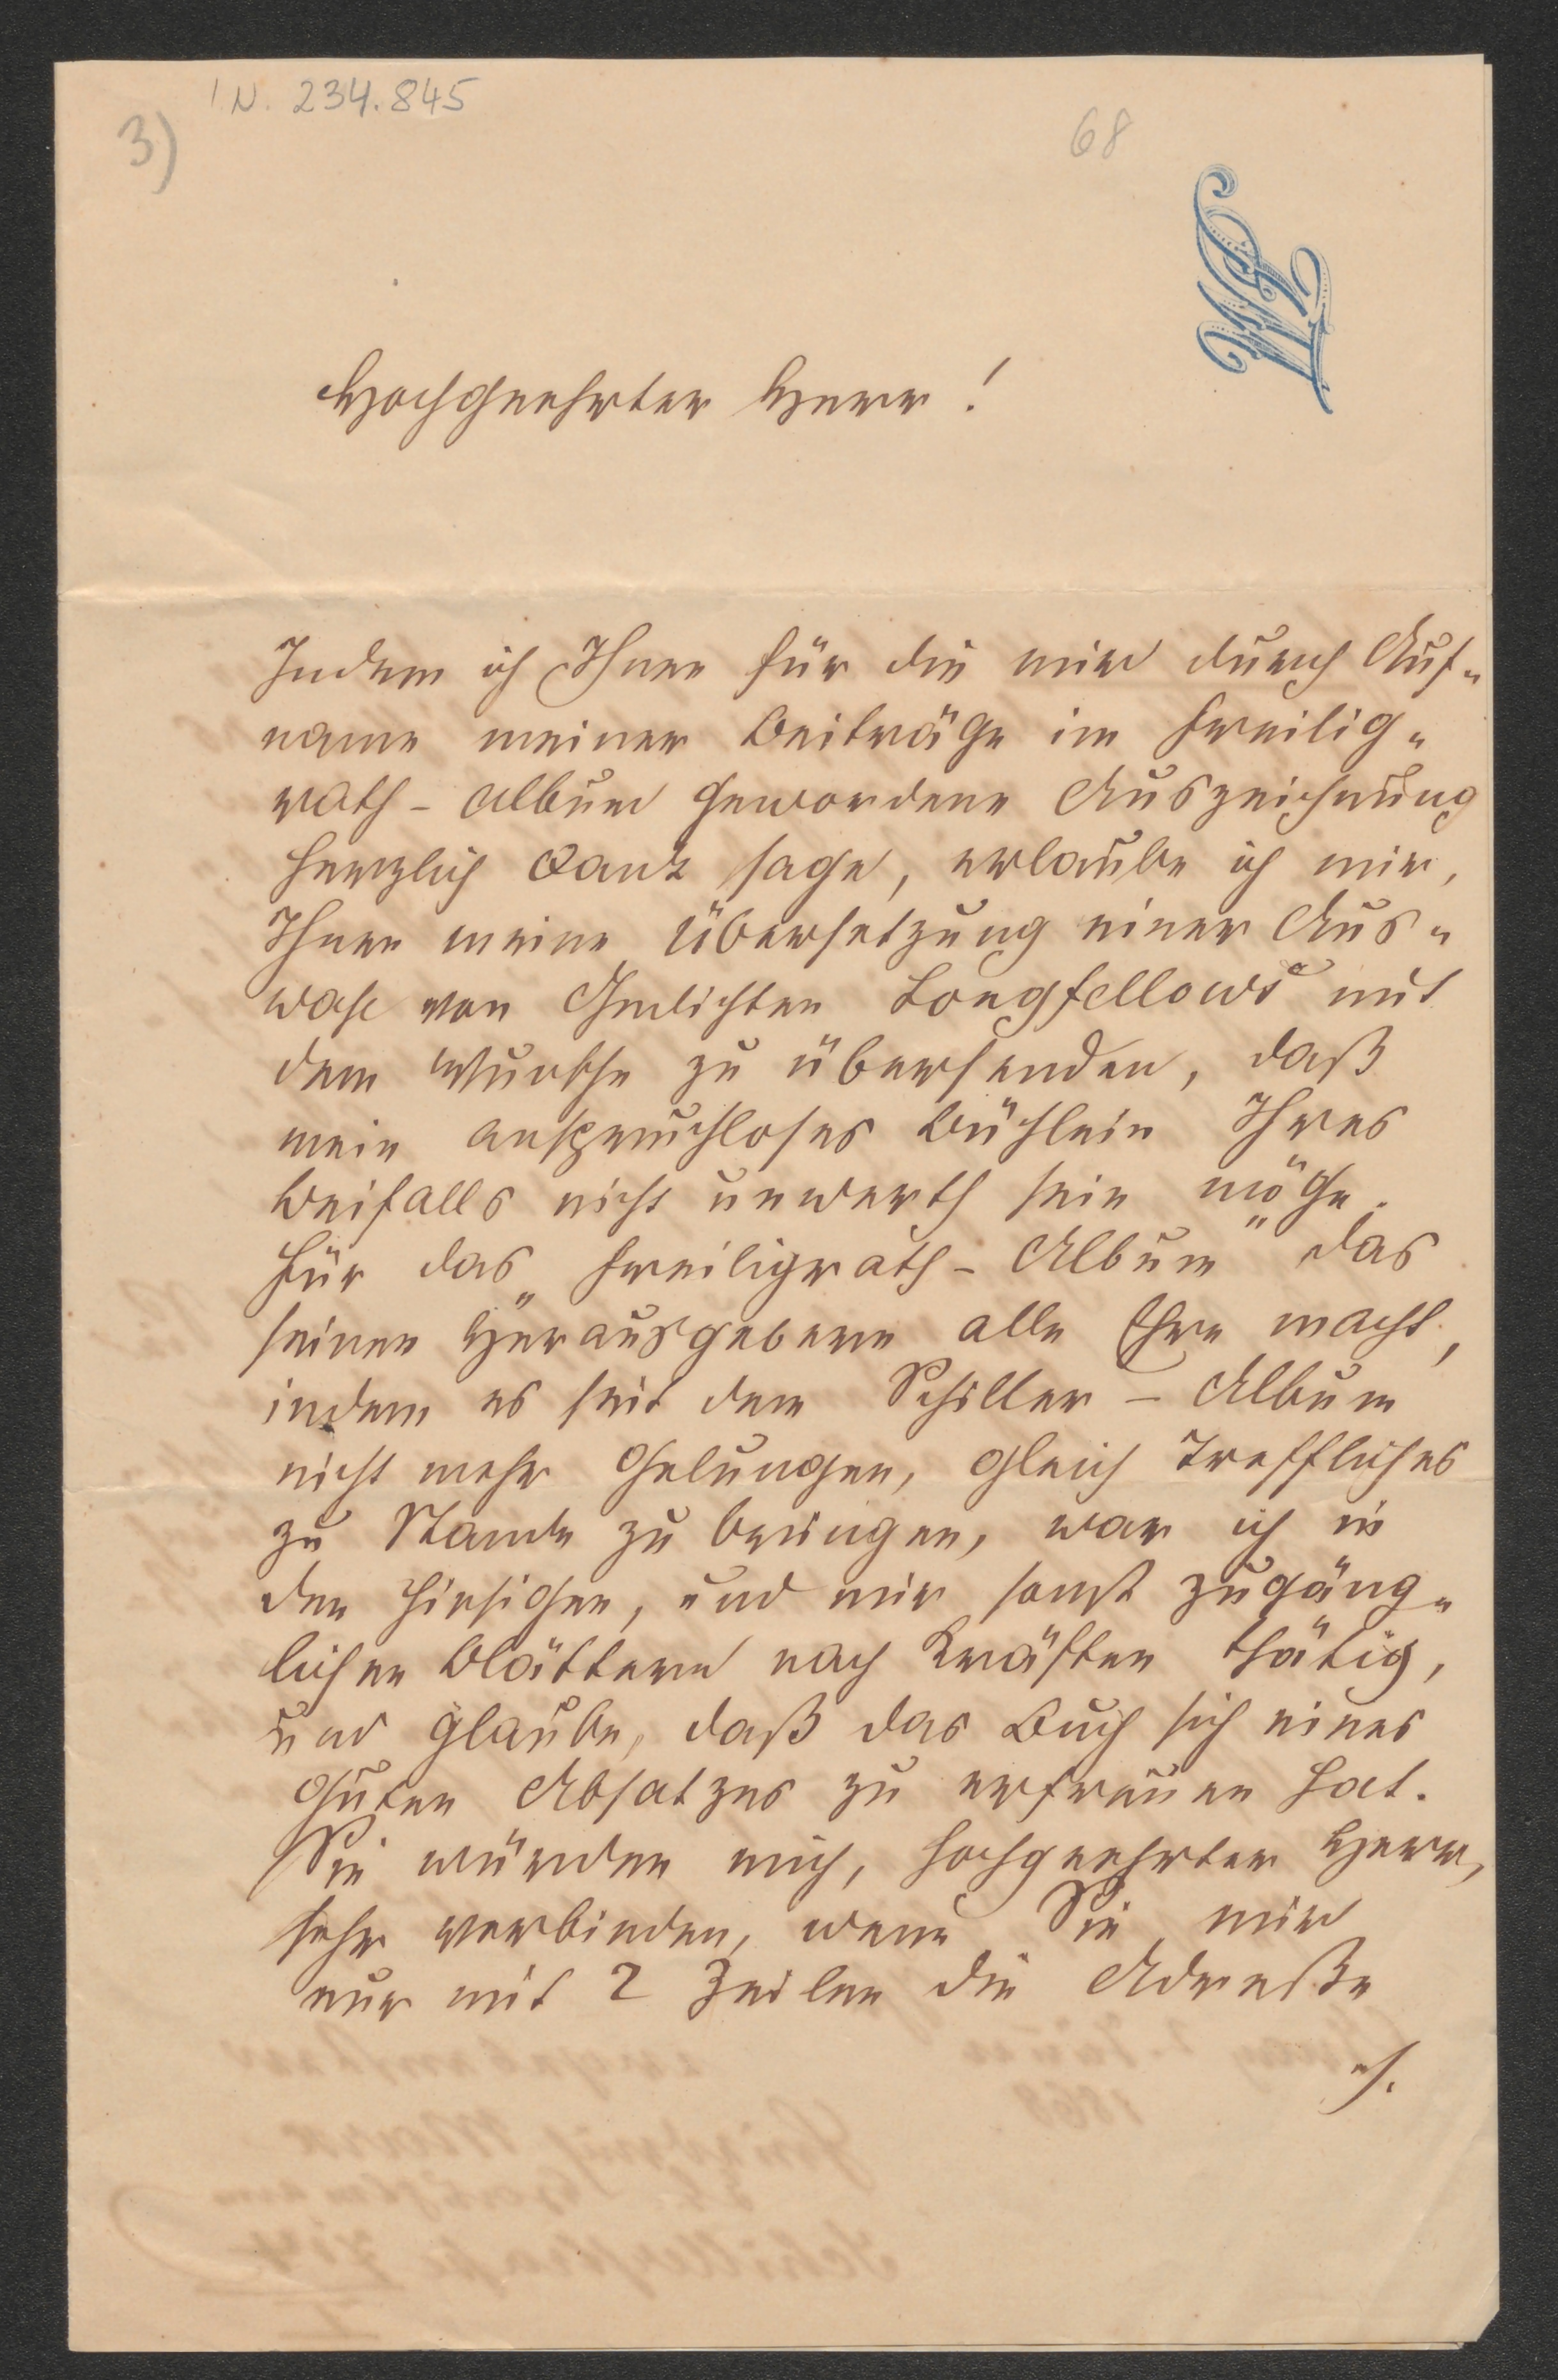 I.N. 234.845
3)
68
Hochgeehrter Herr!
Indem ich Ihnen für die mir durch Auf-
name meiner Beiträge im Freilig-
rath-Album gewordene Auszeichnung
herzlich Dank sage, erlaube ich mir,
Ihnen meine Übersetzung einer Aus-
wahl von Gedichten Longfellows mit
dem Wunsche zu übersenden, daß
mein anspruchloses Büchlein Ihres
Beifalls nicht unwerth sein möge.
Für das „Freiligrath-Album" das
seinen Herausgebern alle Ehre macht,
indem es seit dem Schiller-Album
nicht mehr gelungen, gleich Treffliches
zu Stande zu bringen, war ich in
den hiesigen, und mir sonst zugäng-
lichen Blättern nach Kräften thätig,
und glaube, daß das Buch sich eines
guten Absatzes zu erfreuen hat.
Sie würden mich, hochgeehrter Herr,
sehr verbinden, wenn Sie mir
nur mit 2 Zeilen die Adreße
./.